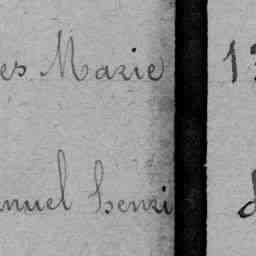 es Marie 13
nuel Henri d